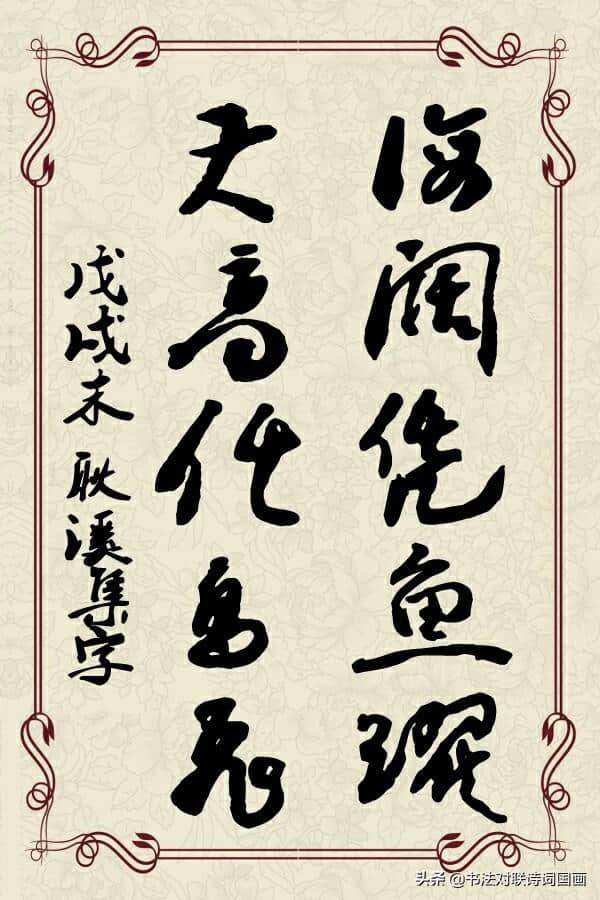 海阔凭鱼跃
天高任鸟飞
戊戌末 耿溪集字
头条 @书法对联诗词国画